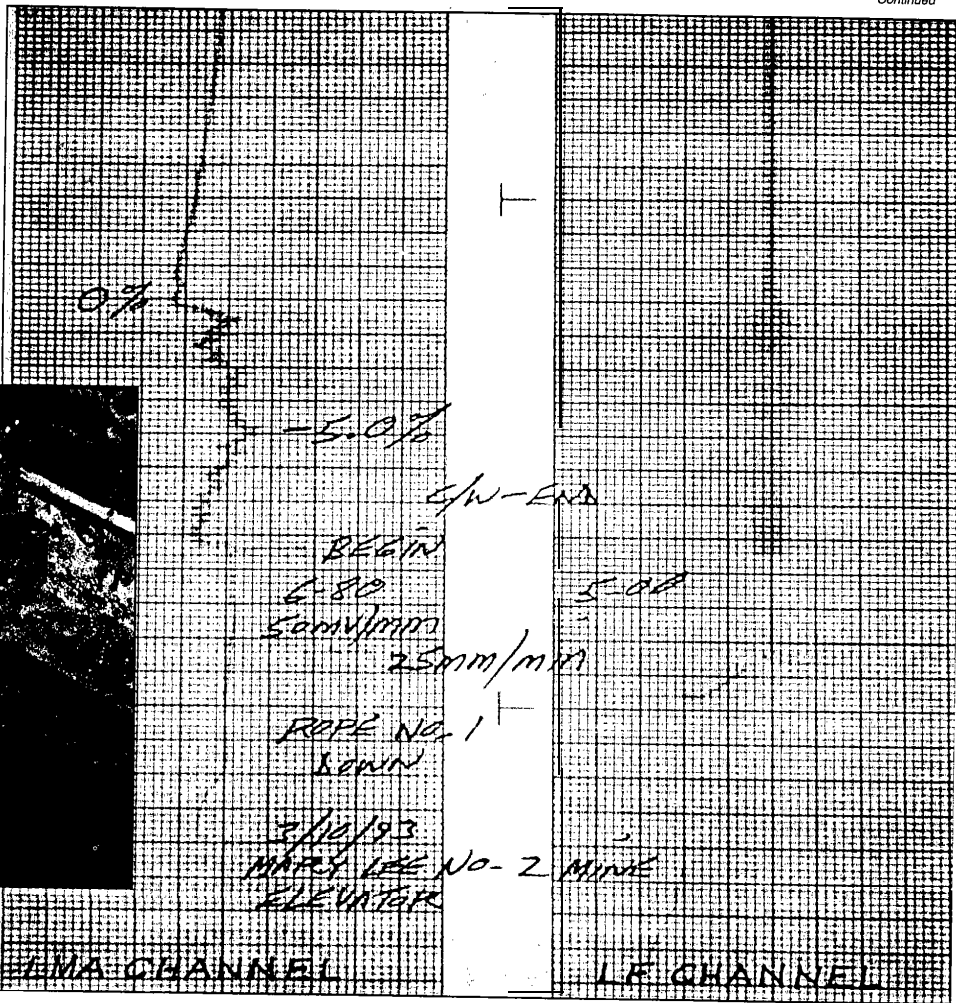 Continued
0%
-5.0%
C/W-END
BEGIN
6-80
5-00
50mv/mm
25mm/min
ROPE NO. 1
DOWN
3/10/93
MARY LEE NO-2 MINE
ELEVATOR
LMA CHANNEL
LF CHANNEL